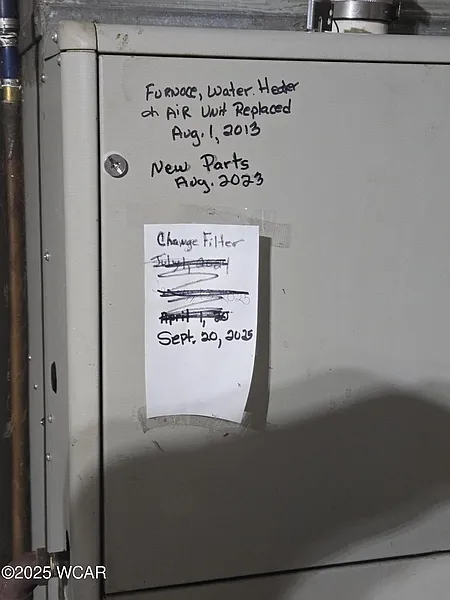 Furnace, Water Heater
on AiR Unit Replaced
Aug. 1, 2013
New Parts
Aug. 2023
Change Filter
July 1, 2024
2025
April 1, 20
Sept. 20, 2025
©2025 WCAR